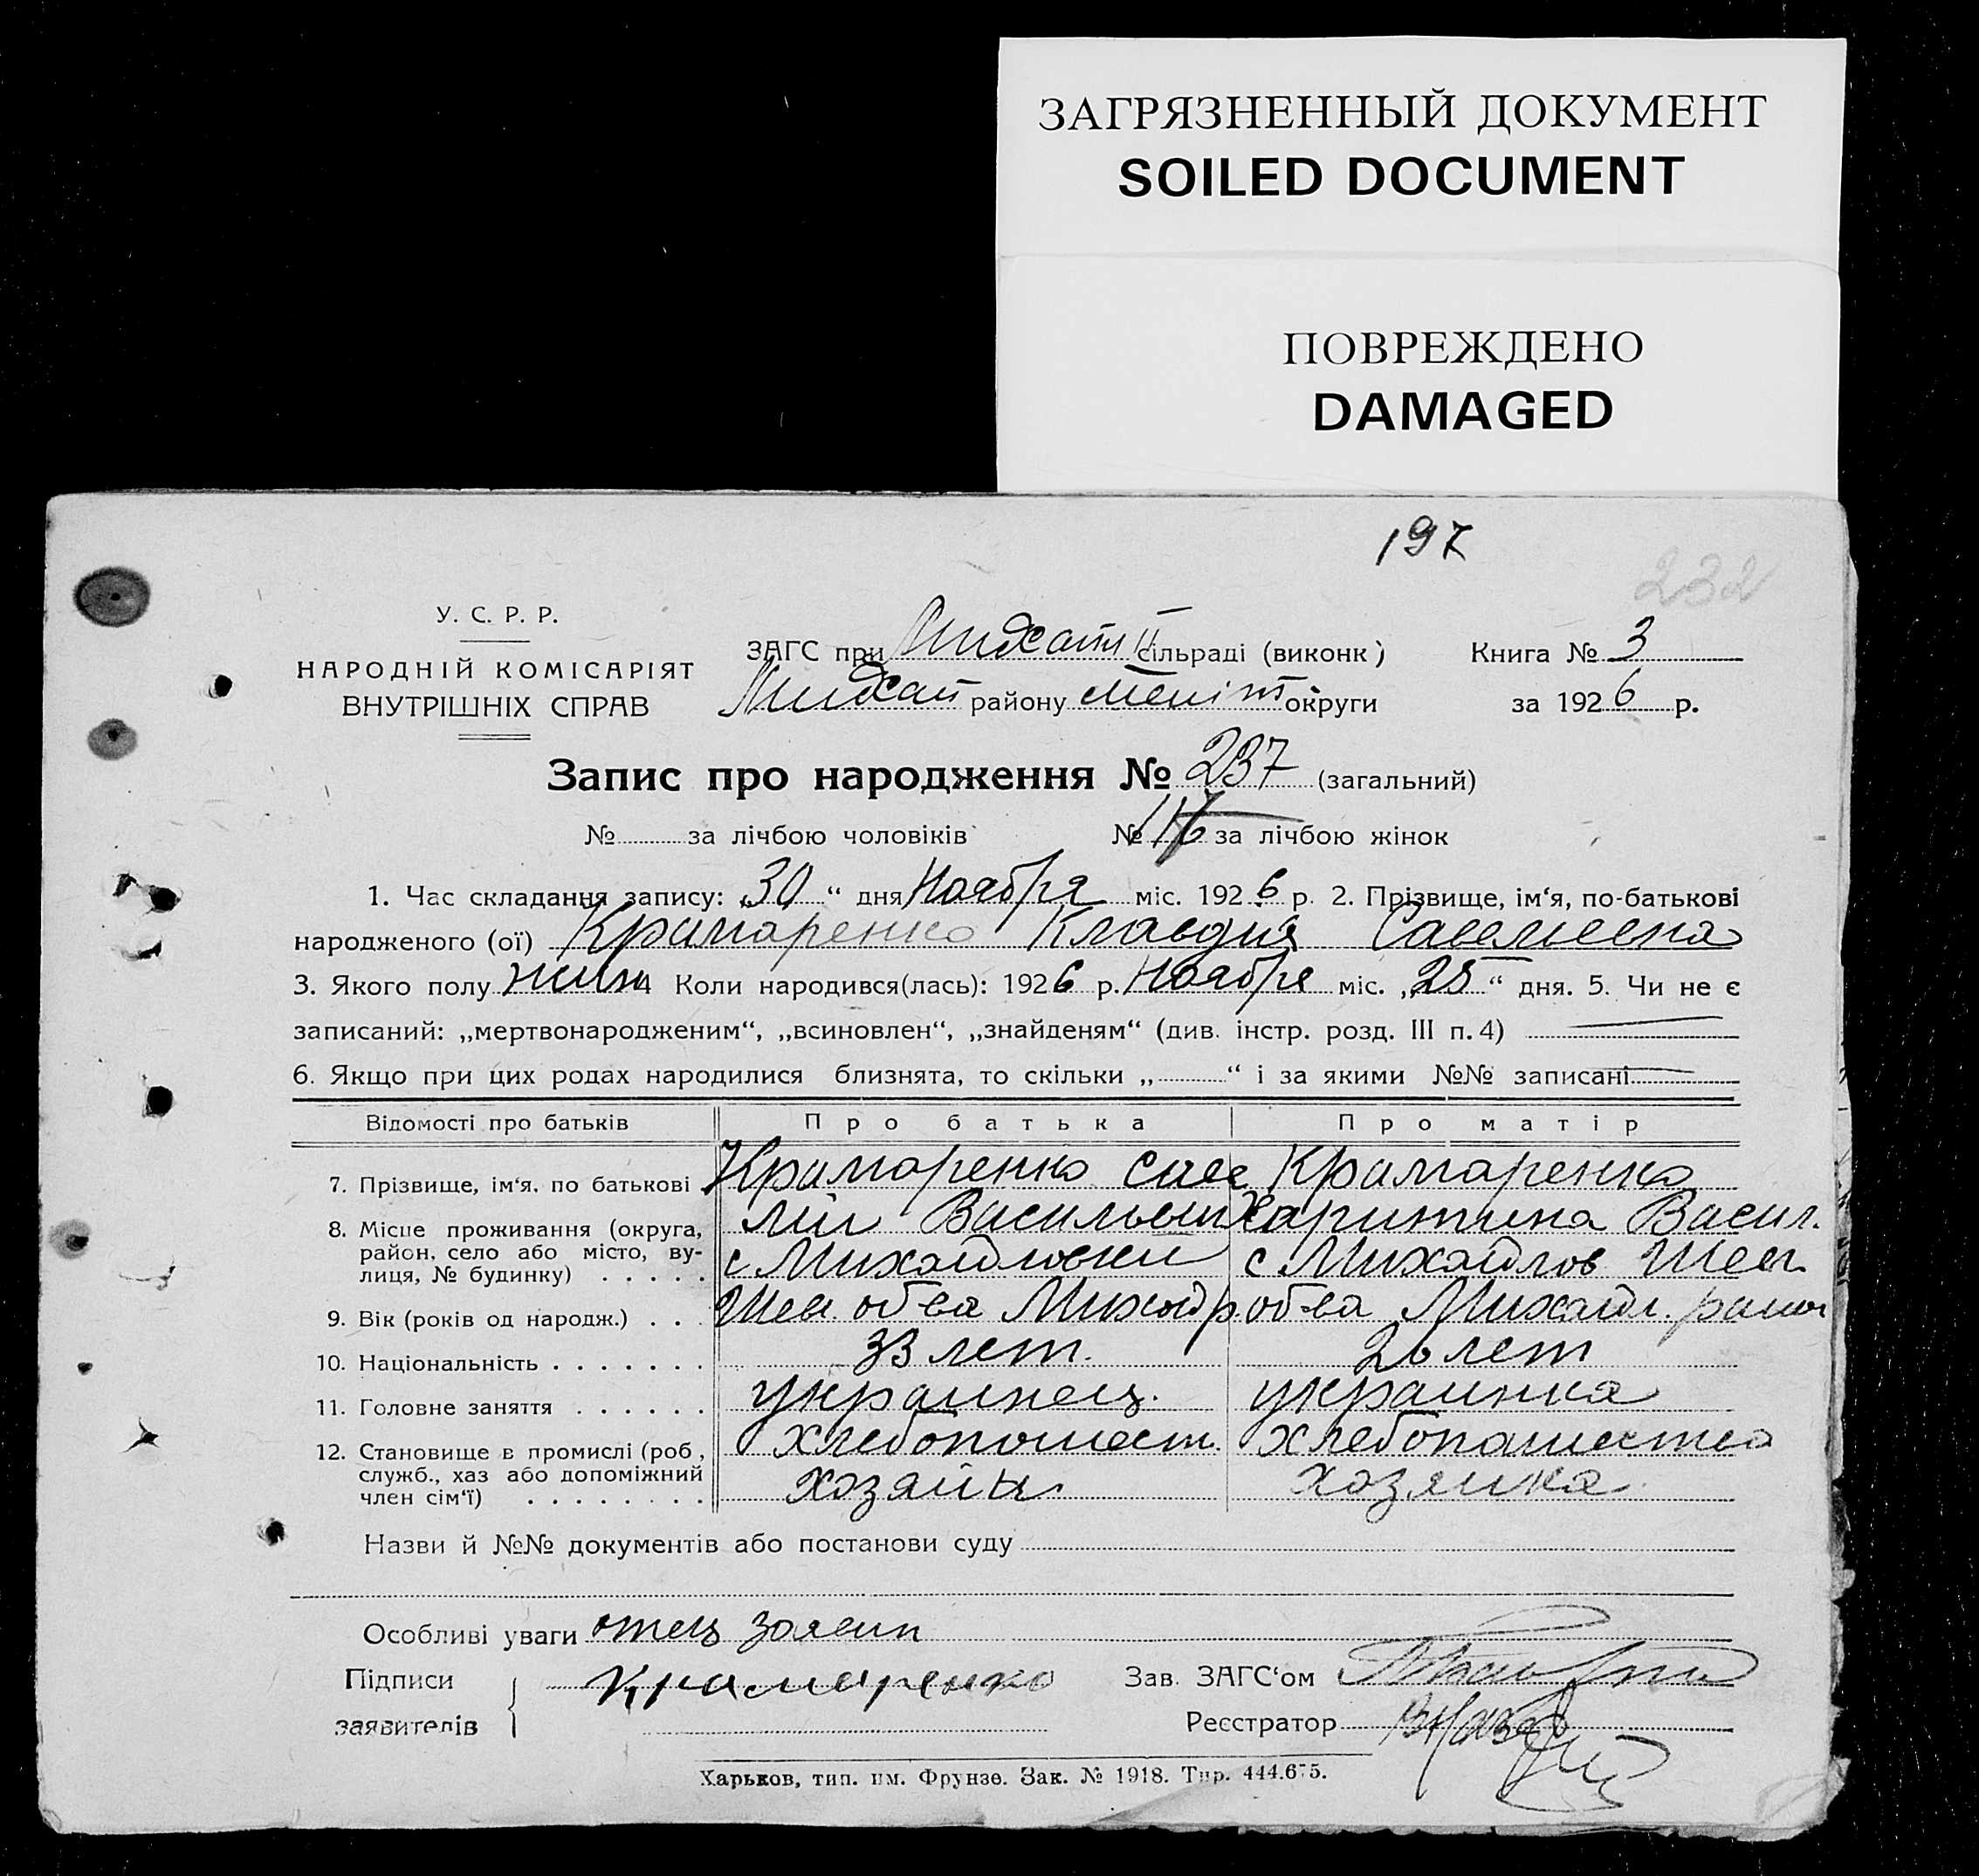 ЗАГРЯЗНЕННЫЙ ДОКУМЕНТ
SOILED DOCUMENT
ПОВРЕЖДЕНО
DAMAGED
197
232
У. С. Р. Р.
НАРОДНІЙ КОМІСАРІЯТ
ВНУТРІШНІХ СПРАВ
ЗАГС при сільраді (виконк)
району округи
Книга № 3
за 1926 р.
Запис про народження № 237 (загальний)
№ за лічбою чоловіків № за лічбою жінок
1. Час складання запису: „30“ дня Ноября міс. 1926 р. 2. Прізвище, ім‘я, по-батькові
народженого (ої) Крамаренко Клавдия Савельевна
3. Якого полу 4 Коли народився(лась): 1926 р. Ноября міс. „25“ дня. 5. Чи не є
записаний: „мертвонародженим“, „всиновлен“, „знайденям“ (див. інстр. розд. III п. 4)
6. Якщо при цих родах народилися близнята, то скільки „ “ і за якими №№ записані
Відомості про батьків Про батька Про матір
7. Прізвище, ім‘я, по батькові Крамаренко Саве Крамаренко
8. Місце проживання (округа, район, село або місто, вулиця, № будинку)
лій Васильев Харитина Васил.
с Михайловки с Михайлов
об-ва об-ва Михайл. район
9. Вік (років од народж.)
33 лет. 26 лет
10. Національність
украинец. украинка
11. Головне заняття
хлебопашест. хлебопашество
12. Становище в промислі (роб., служб., хаз або допоміжний член сім‘ї)
хозяин хозяйка
Назви й №№ документів або постанови суду
Особливі уваги отец заявил
Підписи заявителів Крамаренко
Зав. ЗАГС‘ом
Реєстратор
Харьков, тип. им. Фрунзе. Зак. № 1918. Тир. 444.675.